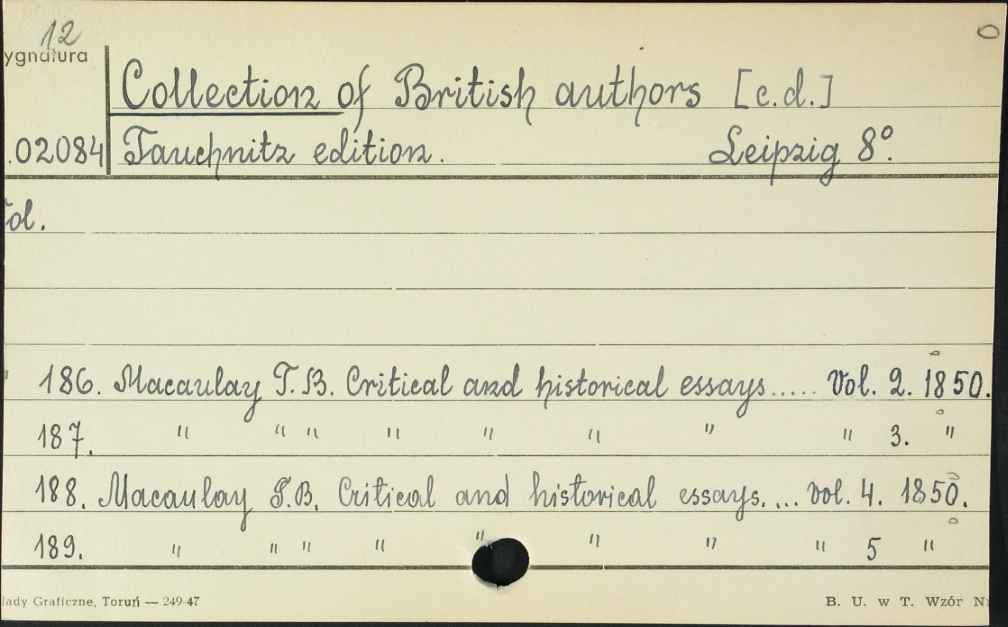 12
ygnatura
Collection of British authors [c.d.]
.02084 Tauchnitz edition. Leipzig 8°.
ol.
186. Macaulay T.B. Critical and historical essays..... Vol. 2. 1850.
187. " " " " " " " " 3. "
188. Macaulay T.B. Critical and historical essays.... Vol. 4. 1850.
189. " " " " " " " " 5 "
łady Graficzne, Toruń — 249-47 B. U. w T. Wzór N